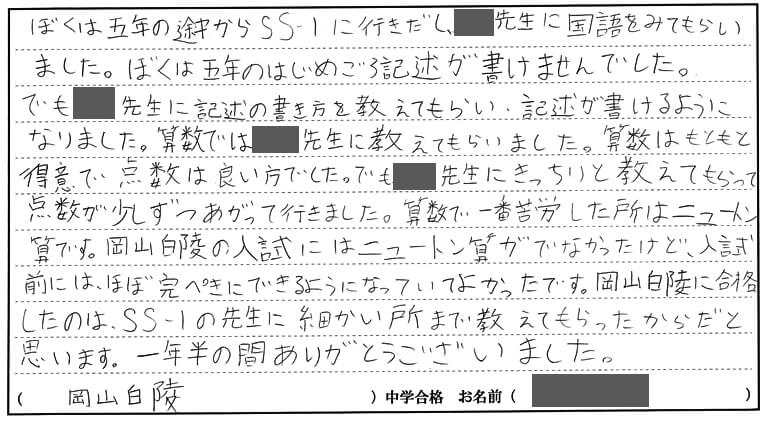 ぼくは五年の途中からSS-1に行きだし、先生に国語をみてもらい
ました。ぼくは五年のはじめごろ記述が書けませんでした。
でも先生に記述の書き方を教えてもらい、記述が書けるように
なりました。算数では先生に教えてもらいました。算数はもともと
得意で点数は良い方でした。でも先生にきっちりと教えてもらって
点数が少しずつあがって行きました。算数で一番苦労した所はニュートン
算です。岡山白陵の入試にはニュートン算がでなかったけど、入試
前には、ほぼ完ぺきにできるようになっていてよかったです。岡山白陵に合格
したのは、SS-1の先生に細かい所まで教えてもらったからだと
思います。一年半の間ありがとうございました。
(岡山白陵)中学合格 お名前()